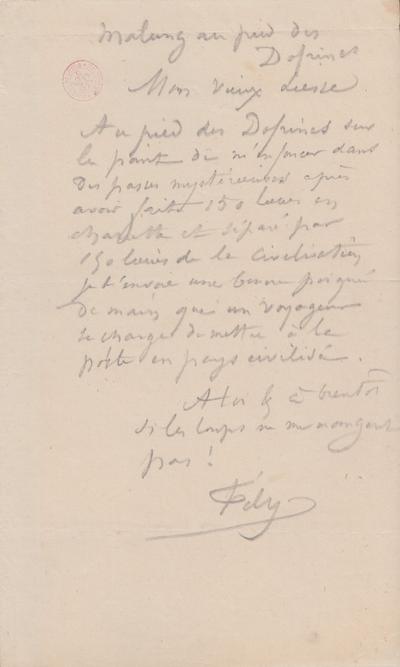 Malung au pied des
Dofrines
Mon vieux Liesse
Au pied des Dofrines sur
le point de m'enfoncer dans
des passes mystérieuses après
avoir faits 150 lieues en
charette et séparé par
150 lieues de la civilisation
je t'envoie une bonne poignée
de mains que un voyageur
se charge de mettre à la
poste en pays civilisé.
A toi & à bientôt
si les loups ne me mangent
pas!
Fély